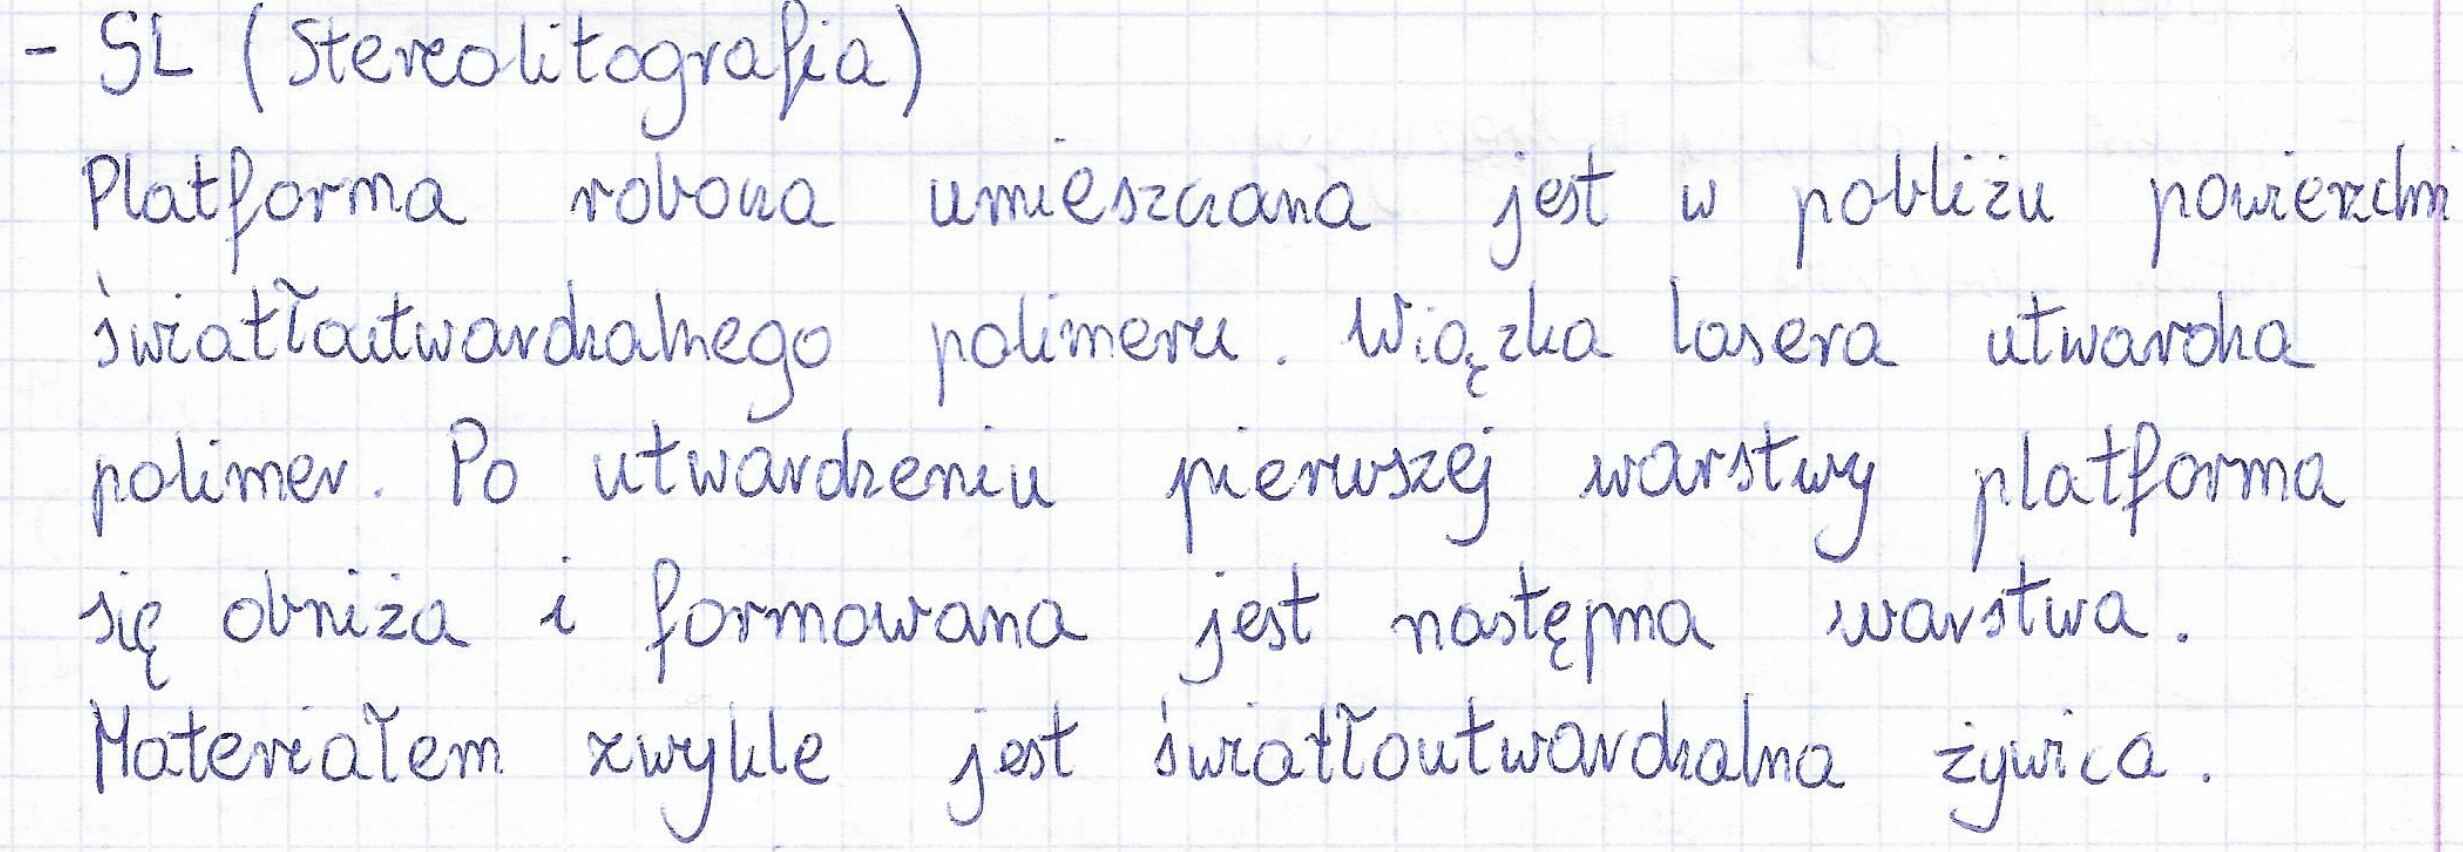 - SL (Stereolitografia)
Platforma robocza umieszczana jest w pobliżu powierzchni
światłoutwardzalnego polimeru. Wiązka lasera utwardza
polimer. Po utwardzeniu pierwszej warstwy platforma
się obniża i formowana jest następna warstwa.
Materiałem zwykle jest światłoutwardzalna żywica.